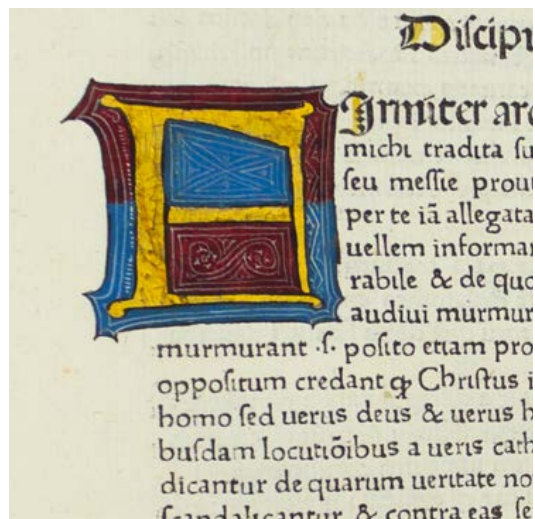 Diſcipu
FIrmiter arc
michi tradita ſu
ſeu meſſie prout
per te iā allegata
uellem informar
rabile & de quo
audiui murmur
murmurant .ſ. poſito etiam pro
oppoſitum credant ꝙ Chriſtus i
homo ſed uerus deus & uerus h
buſdam locutiōibus a ueris cath
dicantur de quarum ueritate no
ſcandalicantur & contra eas ſe